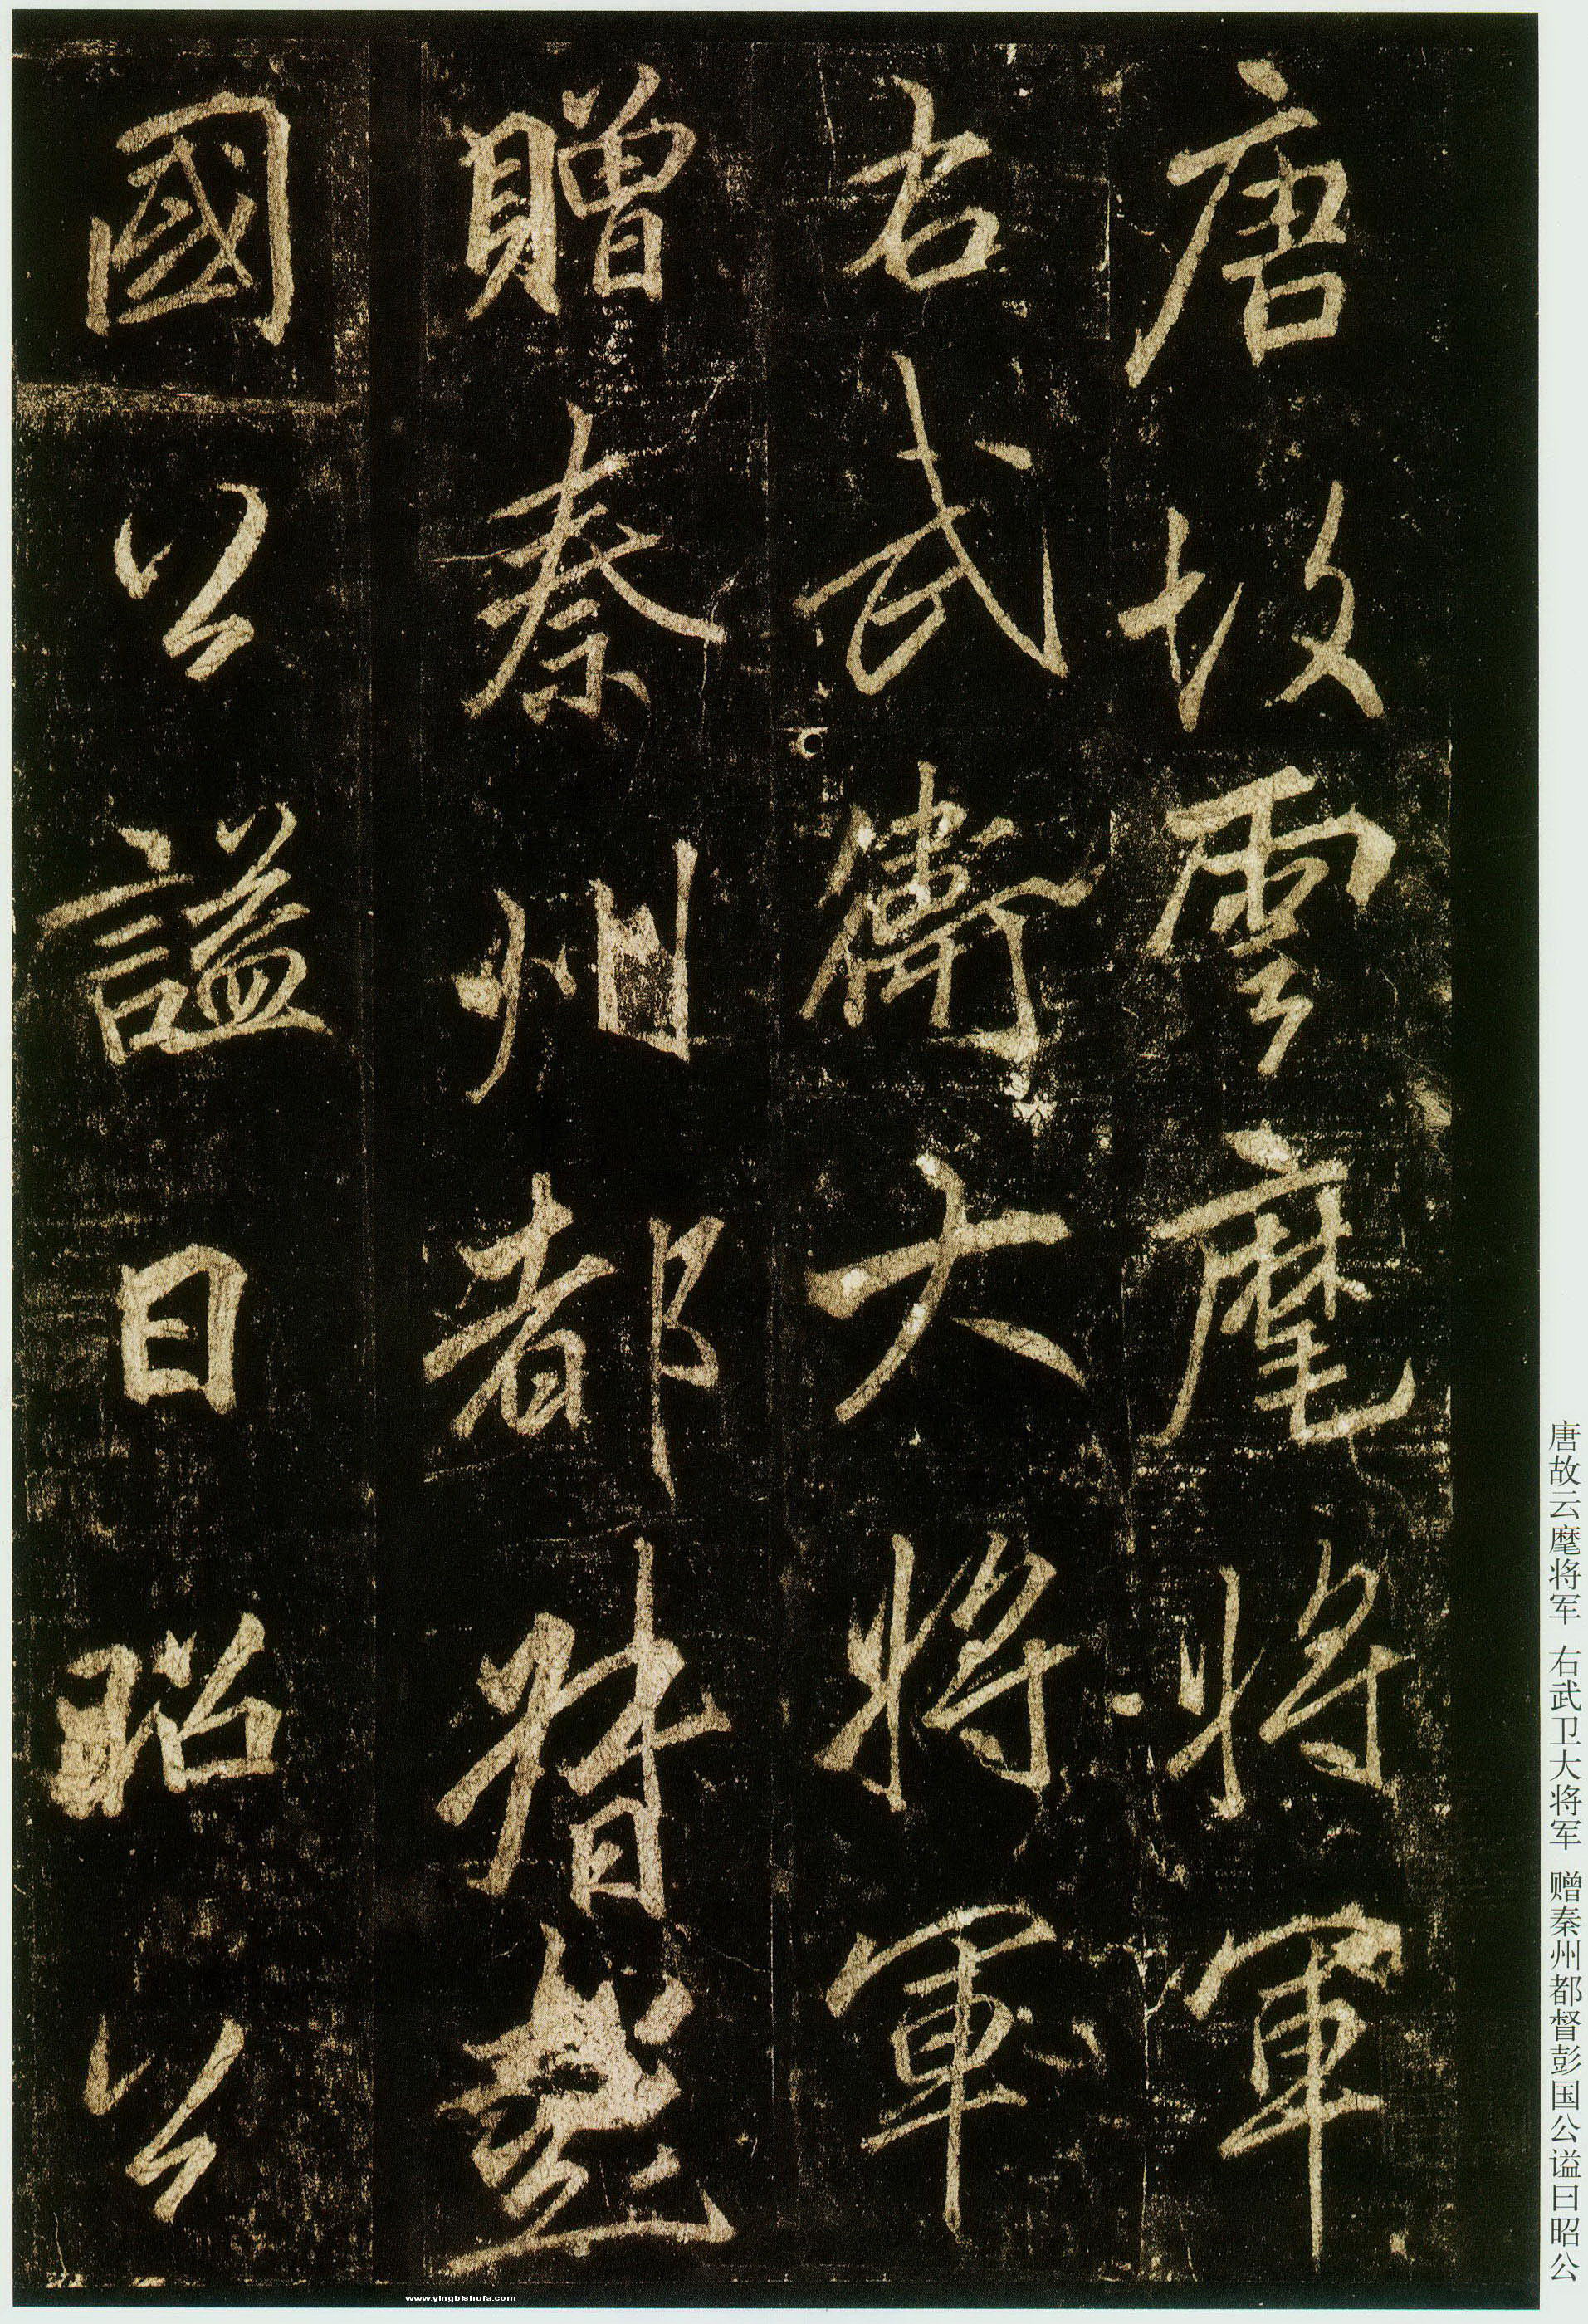 唐故雲麾將軍
右武衛大將軍
贈秦州都督彭
國公謚曰昭公
唐故云麾将军 右武卫大将军 赠秦州都督彭国公谥曰昭公
www.yingbishufa.com